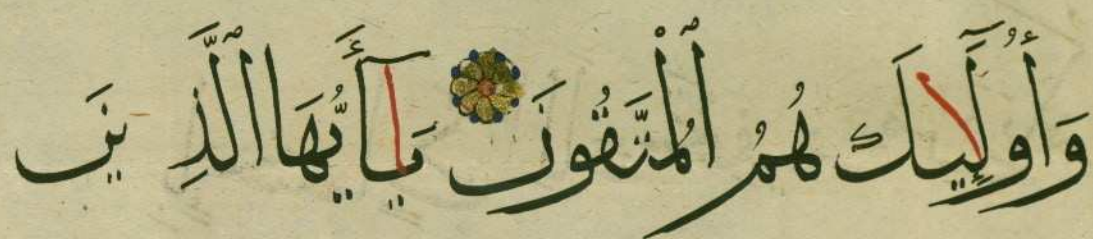 وَأُولَٰٓئِكَ هُمُ ٱلْمُتَّقُونَ يَٰٓأَيُّهَا ٱلَّذِينَ